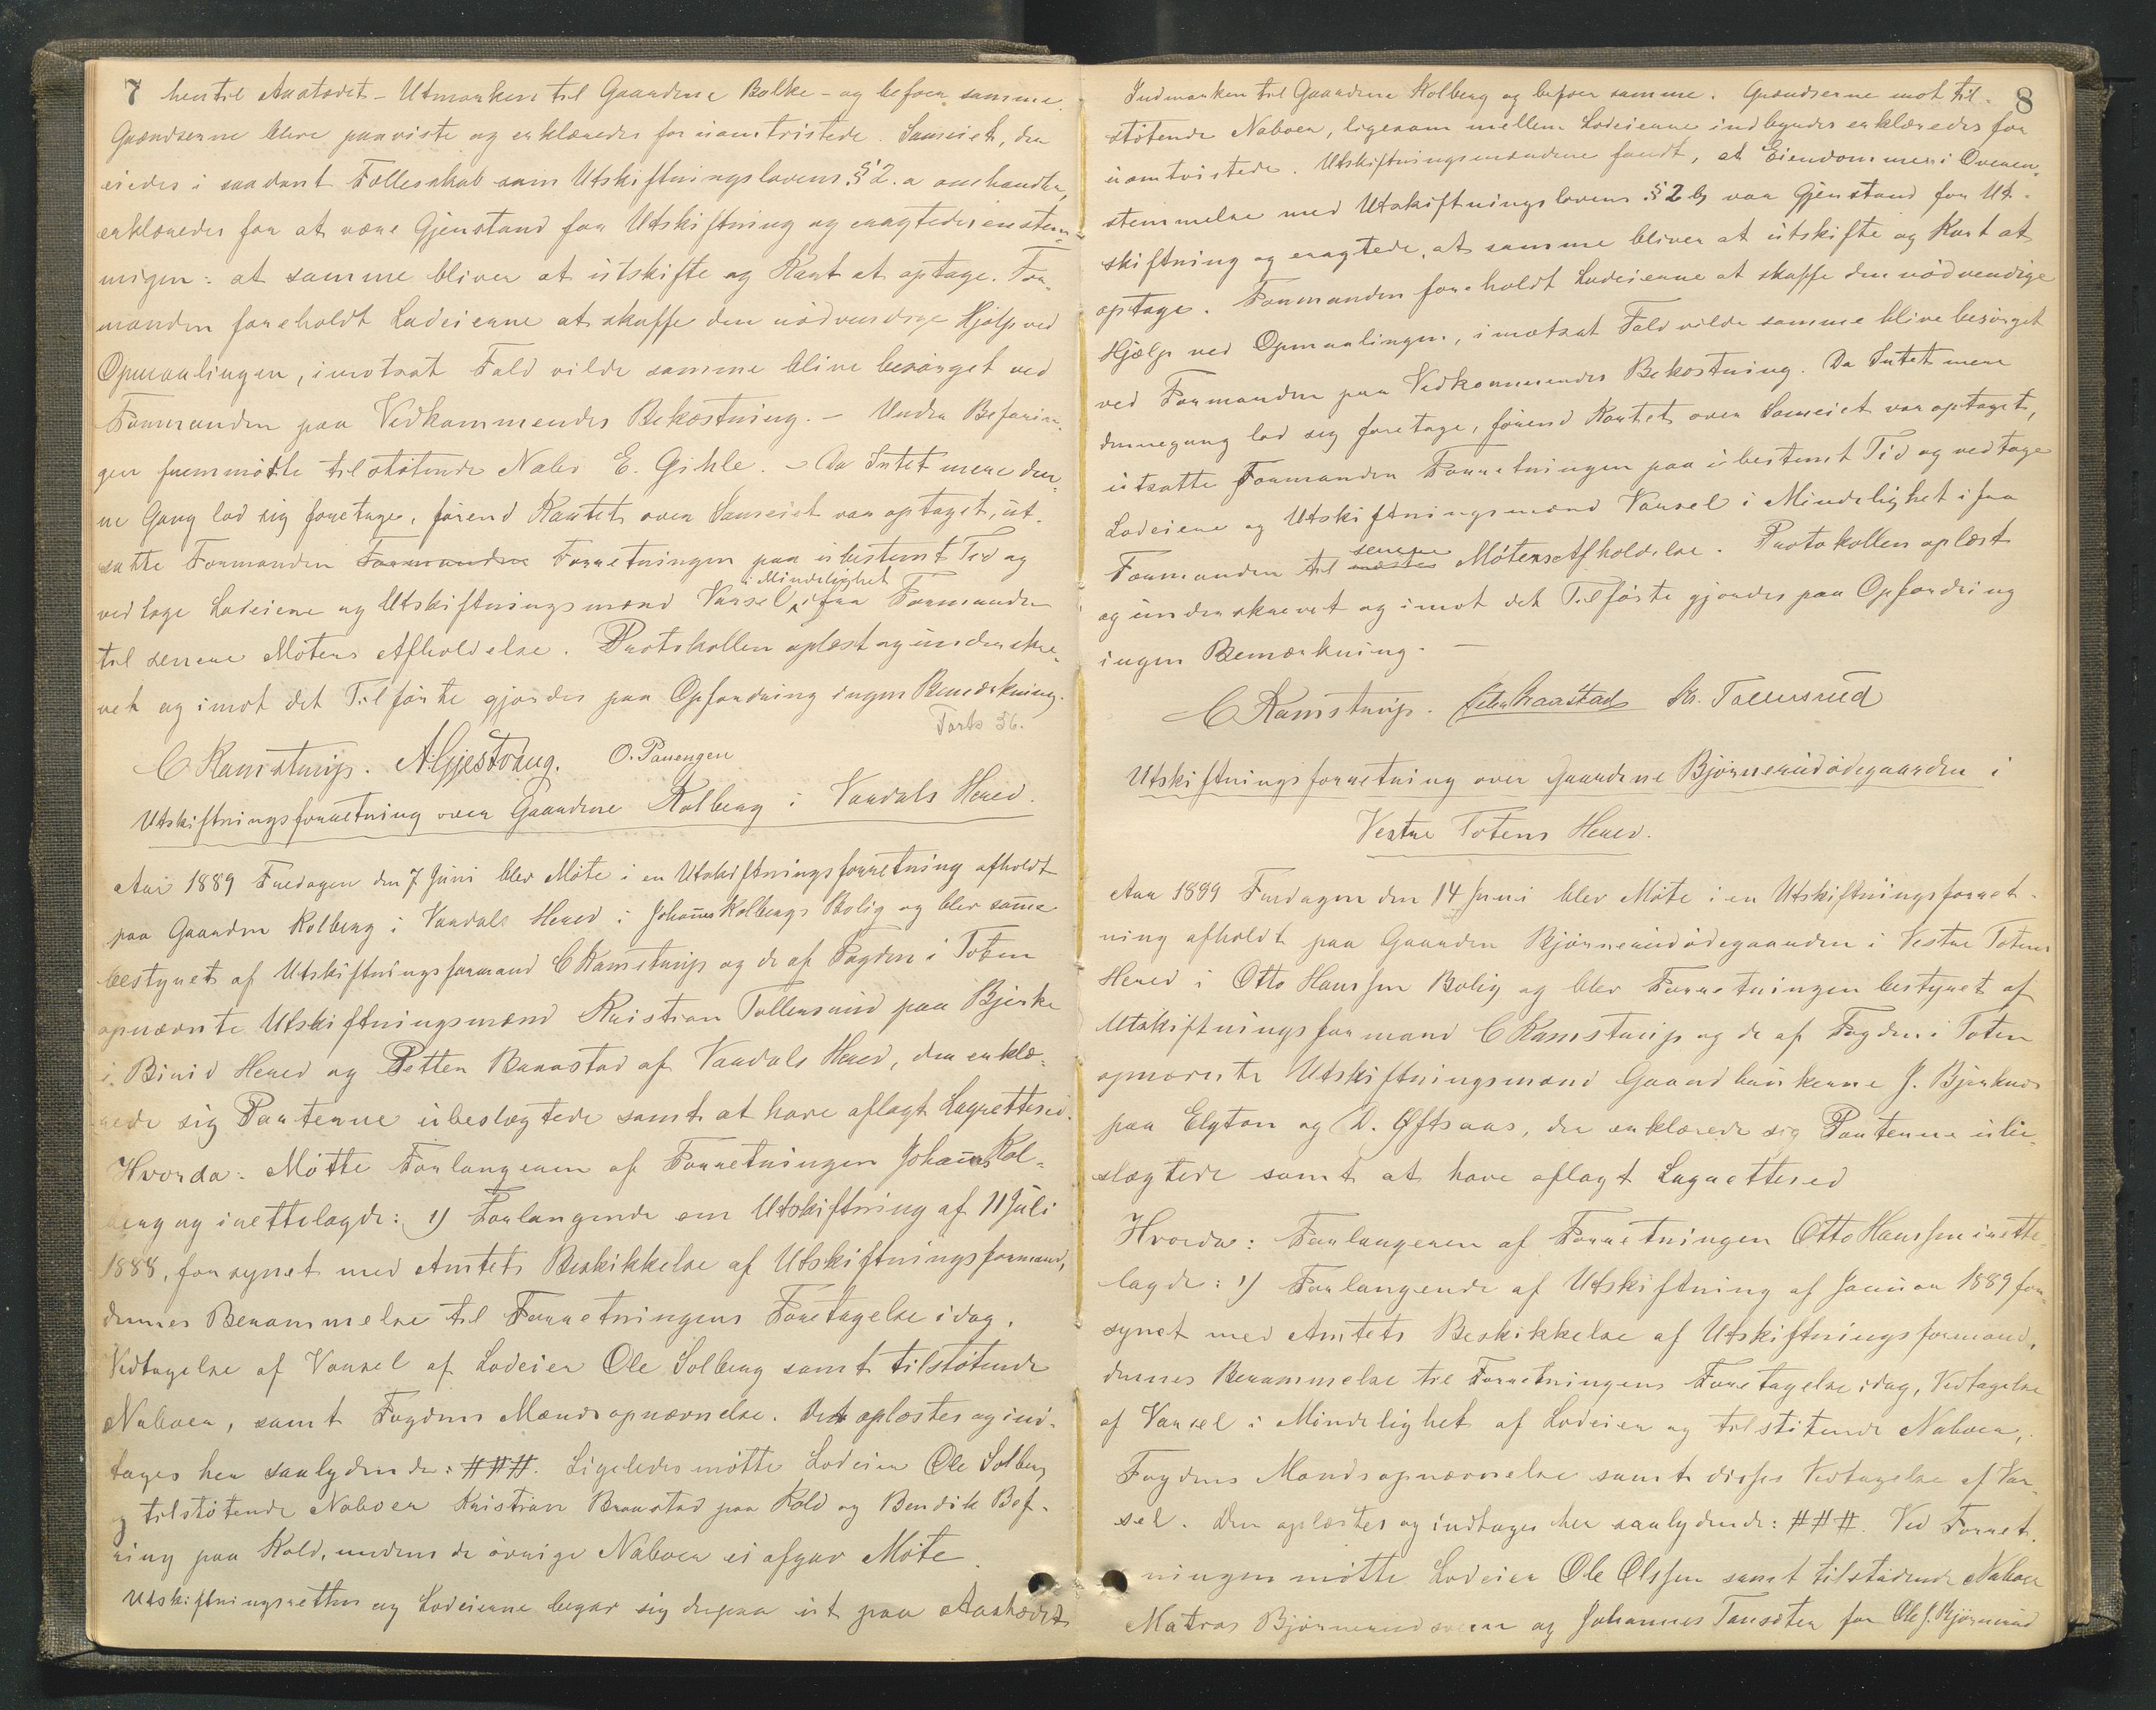 7 hentil Aastedet - Utmarken til Gaardene Balke - og befoer samme.
Grændserne bleve paaviste og erklæredes for uomtvistede. Sameiet, der
eiedes i saadant Fællesskab som Utskiftningslovens § 2. a omhandler,
erklæredes for at være Gjenstand for Utskiftning og eragtedes enstem-
migen: at samme bliver at utskifte og Kart at optage. For-
manden foreholdt Lodeierne at skaffe den nödvendige Hjælp ved
Opmaalingen, i motsat Fald vilde samme blive besörget ved
Formanden paa Vedkommendes Bekostning. - Under Befarin-
gen fremmötte tilstötende Nabo E. Gihle. - Da Intet mere den-
ne Gang lod sig foretage, förend Kartet over Sameiet var optaget, ut-
satte Formanden Formanden Forretningen paa ubestemt Tid og
vedtage Lodeierne og Utskiftningsmænd Varsel i Mindelighet ifra Formanden
til senere Möters Afholdelse. Protokollen oplæst og underskre-
vet og imot det Tilförte gjordes paa Opfordring ingen Bemærkning.
Forts 56.
C Ramstrup. A. Gjestrang. O. Pavengen
Utskiftningsforretning over Gaardene Kolberg i Vardals Hered.
Aar 1889 Fredagen den 7 Juni blev Möte i en Utskiftningsforretning afholdt
paa Gaarden Kolberg i Vardals Hered i Johannes Kolbergs Bolig og blev samme
bestyret af Utskiftningsformand C Ramstrup og de af Fogden i Toten
opnævnte Utskiftningsmænd Kristian Tollersrud paa Bjerke
i Birid Hered og Petter Braastad af Vardals Hered, der erklæ-
rede sig Parterne ubeslægtede samt at have aflagt Lagretteseid.
Hvorda: Mötte Forlangeren af Forretningen Johannes Kol-
berg og irettelagde: 1) Forlangende om Utskiftning af 11 Juli
1888, forsynet med Amtets Beskikkelse af Utskiftningsformand,
dennes Berammelse til Forretningens Foretagelse idag,
Vedtagelse af Varsel af Lodeier Ole Solberg samt tilstötende
Naboer, samt Fogdens Mændsopnævnelse. Det oplæstes og ind-
tages her saalydende: ###. Ligeledes mötte Lodeier Ole Solberg
og tilstötende Naboer Kristian Braastad paa Kold og Bendik Bef-
ring paa Kold, medens de övrige Naboer ei afgav Möte.
Utskiftningsretten og Lodeierne begav sig derpaa ut paa Aastedet
8
Indmarken til Gaardene Kolberg og befoer samme. Grændserne mot til-
stötende Naboer, ligesom mellem Lodeierne indbyrdes erklæredes for
uomtvistede. Utskiftningsmændene fandt, at Eiendommen i Overen-
stemmelse med Utskiftningslovens § 2 b var Gjenstand for Ut-
skiftning og eragtede, at samme bliver at utskifte og Kart at
optage. Formanden foreholdt Lodeierne at skaffe den nödvendige
Hjælp ved Opmaalingen, i motsat Fald vilde samme blive besörget
ved Formanden paa Vedkommendes Bekostning. Da Intet mere
dennegang lod sig foretage, förend Kartet over Sameiet var optaget,
utsatte Formanden Forretningen paa ubestemt Tid og vedtage
Lodeierne og Utskiftningsmænd Varsel i Mindelighet ifra
Formanden til næste senere Möters Afholdelse. Protokollen oplæst
og underskrevet og imot det Tilförte gjordes paa Opfordring
ingen Bemærkning. -
C Ramstrup. Peter Braastad Kr. Tollersrud
Utskiftningsforretning over Gaardene Björnerudödegaarden i
Vestre Totens Hered.
Aar 1899 Fredagen den 14 Juni blev Möte i en Utskiftningsforret-
ning afholdt paa Gaarden Björnerudödegaarden i Vestre Totens
Hered i Otto Hanssen Bolig og blev Forretningen bestyret af
Utskiftningsformand C Ramstrup og de af Fogden i Toten
opnævnte Utskiftningsmænd Gaardbrukerne J. Björknes
paa Elgton og D. Öftsaas, der erklærede sig Parterne ube-
slægtede samt at have aflagt Lagretteseid
Hvorda: Forlangeren af Forretningen Otto Hanssen irette-
lagde: 1) Forlangende af Utskiftning af Januar 1889 for-
synet med Amtets Beskikkelse af Utskiftningsformand,
dennes Berammelse til Forretningens Foretagelse idag, Vedtagelse
af Varsel i Mindelighet af Lodeier og tilstötende Naboer,
Fogdens Mændsopnævnelse samt disses Vedtagelse af Var-
sel. Den oplæstes og indtages her saalydende: ###. Ved Forret-
ningen mötte Lodeier Ole Olssen samt tilstödende Naboer
Matros Björnerud og Johannes Tansöten for Ole J. Björnerud